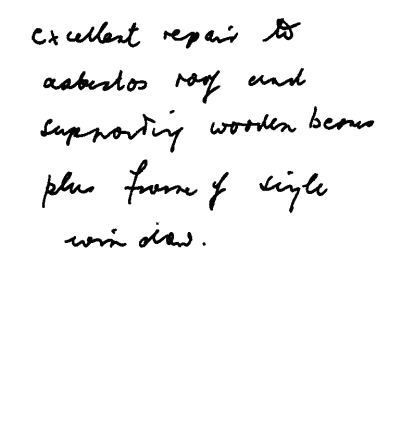 excellent repair to
asbestos roof and
supporting wooden beams
plus frame of single
window.